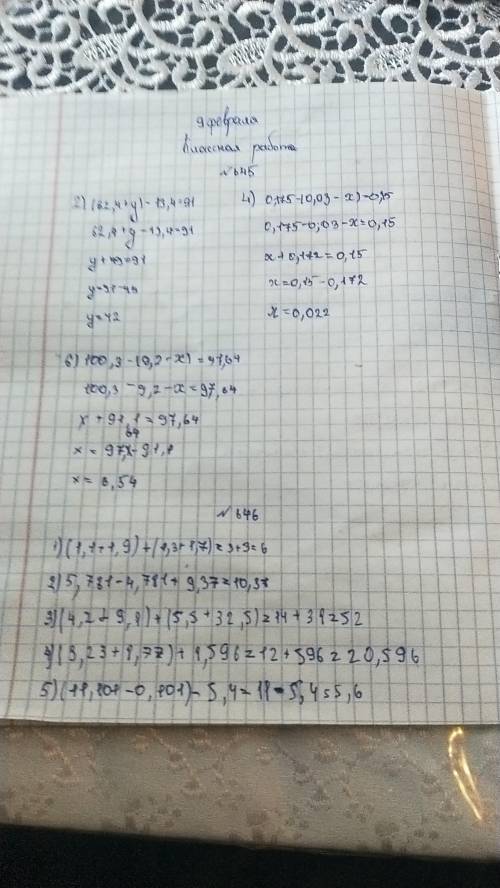 9 февраля
Классная работа
№645
2) (62,4+y)-13,4=91
62,4+y-13,4=91
y+49=91
y=91-49
y=42
4) 0,175-(0,03-x)=0,15
0,175-0,03-x=0,15
x+0,172=0,15
x=0,15-0,172
x=0,022
6) 100,3-(9,2-x)=97,64
100,3-9,2-x=97,64
x+91,1=97,64
x=97,64-91,1
x=6,54
№646
1) (1,1+1,9)+(1,3+1,7)=3+3=6
2) 5,781-4,781+9,37=10,37
3) (4,2+9,8)+(5,5+32,5)=14+38=52
4) (3,23+8,77)+8,596=12+596=20,596
5) (11,801-0,801)-5,4=11-5,4=5,6